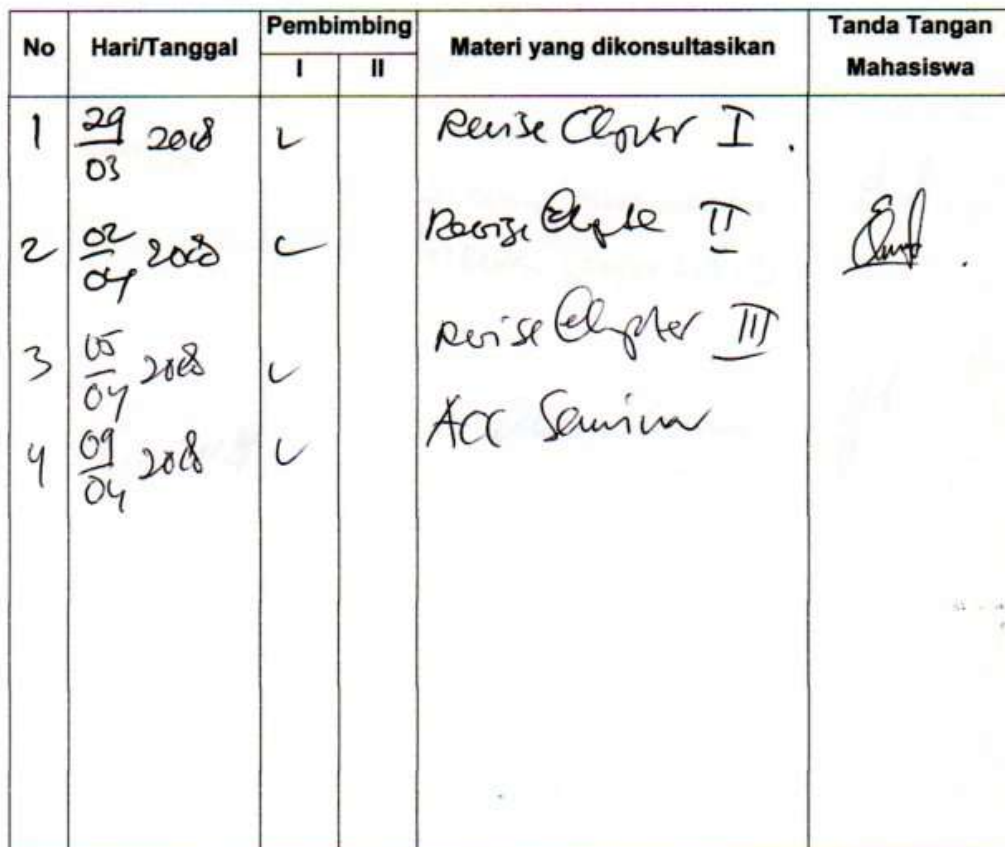 No Hari/Tanggal Pembimbing Materi yang dikonsultasikan Tanda Tangan Mahasiswa
I II
1 29/03 2018 ✓ Revise Chapter I.
2 02/04 2018 ✓ Revise Chapter II
3 05/04 2018 ✓ Revise Chapter III
4 09/04 2018 ✓ ACC Seminar